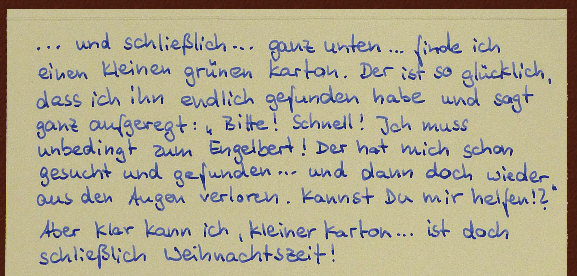 ... und schließlich... ganz unten... finde ich
einen kleinen grünen Karton. Der ist so glücklich,
dass ich ihn endlich gefunden habe und sagt
ganz aufgeregt: „Bitte! Schnell! Ich muss
unbedingt zum Engelbert! Der hat mich schon
gesucht und gefunden... und dann doch wieder
aus den Augen verloren. Kannst Du mir helfen!?"
Aber klar kann ich, kleiner Karton... ist doch
schließlich Weihnachtszeit!